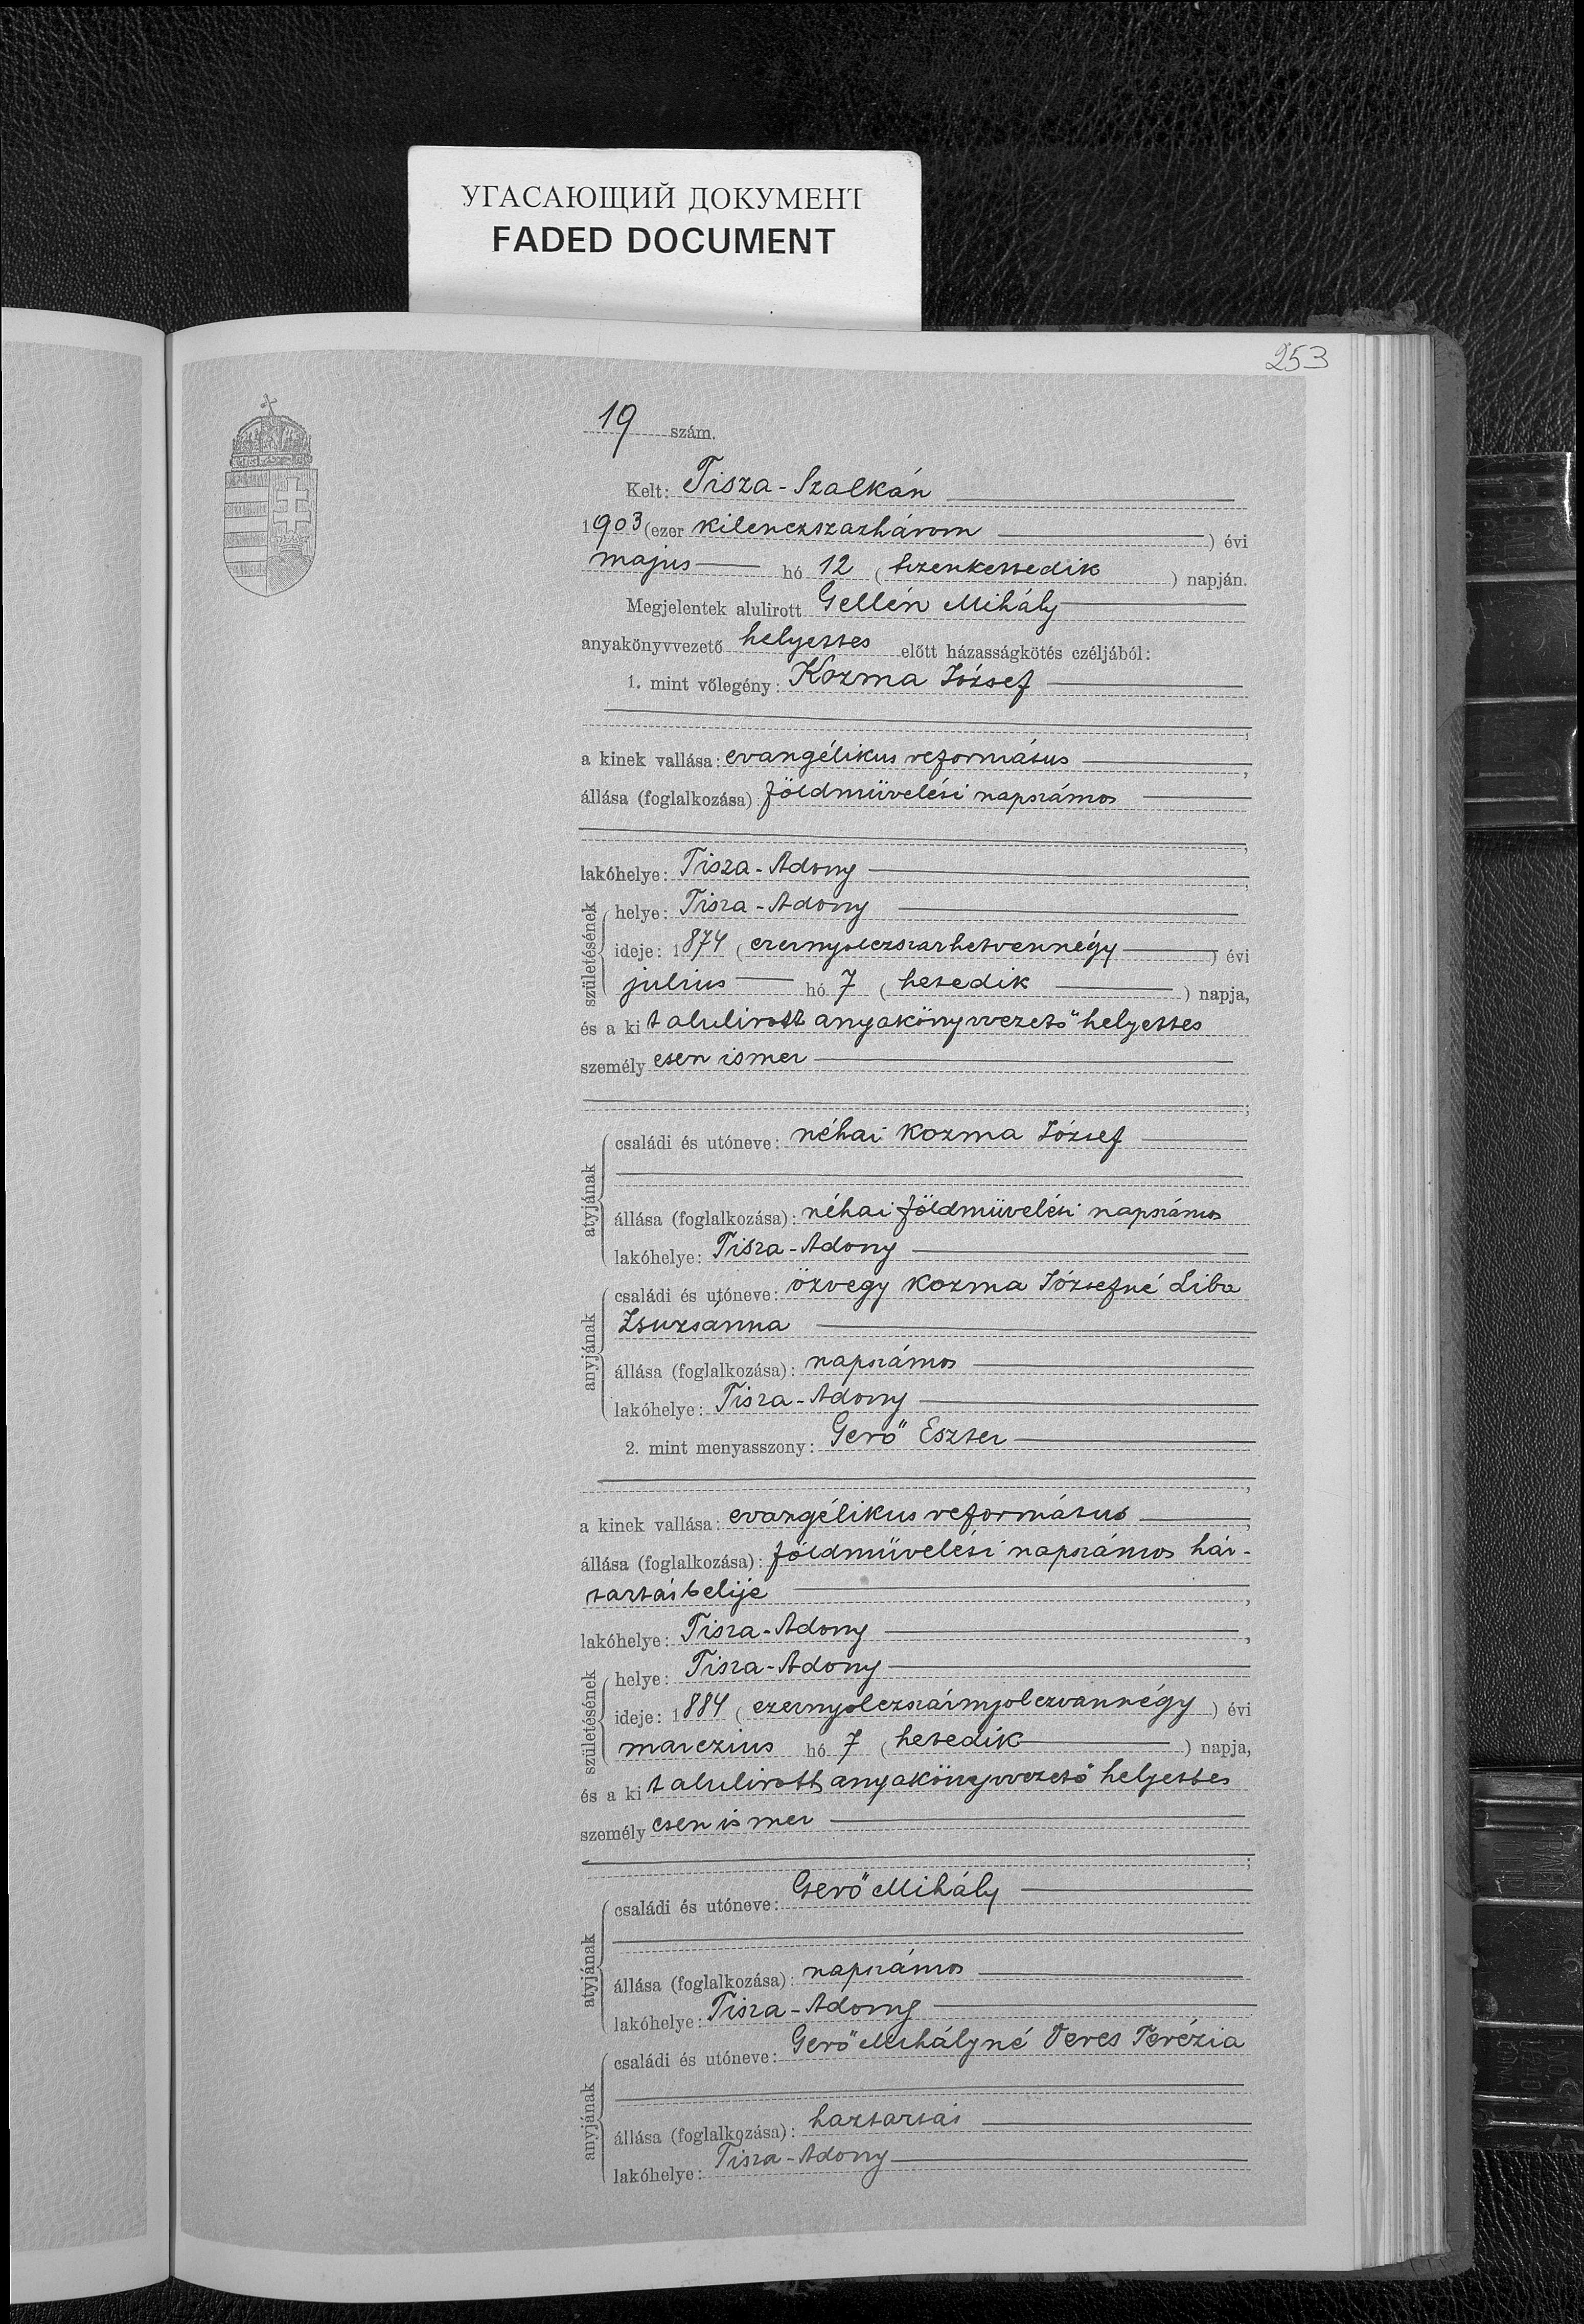 УГАСАЮЩИЙ ДОКУМЕНТ
FADED DOCUMENT
253
19 szám.
Kelt: Tisza-Szalkán
1903 (ezer kilenczszazhárom) évi
majus hó 12 (tizenkettedik) napján.
Megjelentek alulirott Gellén Mihály
anyakönyvvezető helyettes előtt házasságkötés czéljából:
1. mint vőlegény: Kozma József
a kinek vallása: evangélikus református,
állása (foglalkozása) földmüvelési napszámos
lakóhelye: Tisza-Adony
születésének
helye: Tisza-Adony
ideje: 1874 (ezernyolczszazhetvennégy) évi
julius hó 7 (hetedik) napja,
és a kit alulirott anyakönyvvezető helyettes
személyesen ismer
atyjának
családi és utóneve: néhai Kozma József
állása (foglalkozása): néhai földmüvelési napszámos
lakóhelye: Tisza-Adony
anyjának
családi és utóneve: özvegy Kozma Józsefné Liba
Zsuzsánna
állása (foglalkozása): napszámos
lakóhelye: Tisza-Adony
2. mint menyasszony: Gerő Eszter
a kinek vallása: evangélikus református,
állása (foglalkozása): földmüvelési napszámos ház-
tartásbelije
lakóhelye: Tisza-Adony,
születésének
helye: Tisza-Adony
ideje: 1884 (ezernyolczszáznyolczvannégy) évi
marczius hó 7 (hetedik) napja,
és a kit alulirott anyakönyvvezető helyettes
személyesen ismer
atyjának
családi és utóneve: Gerő Mihály
állása (foglalkozása): napszámos
lakóhelye: Tisza-Adony
anyjának
családi és utóneve: Gerő Mihályné Veres Terézia
állása (foglalkozása): haztartás
lakóhelye: Tisza-Adony